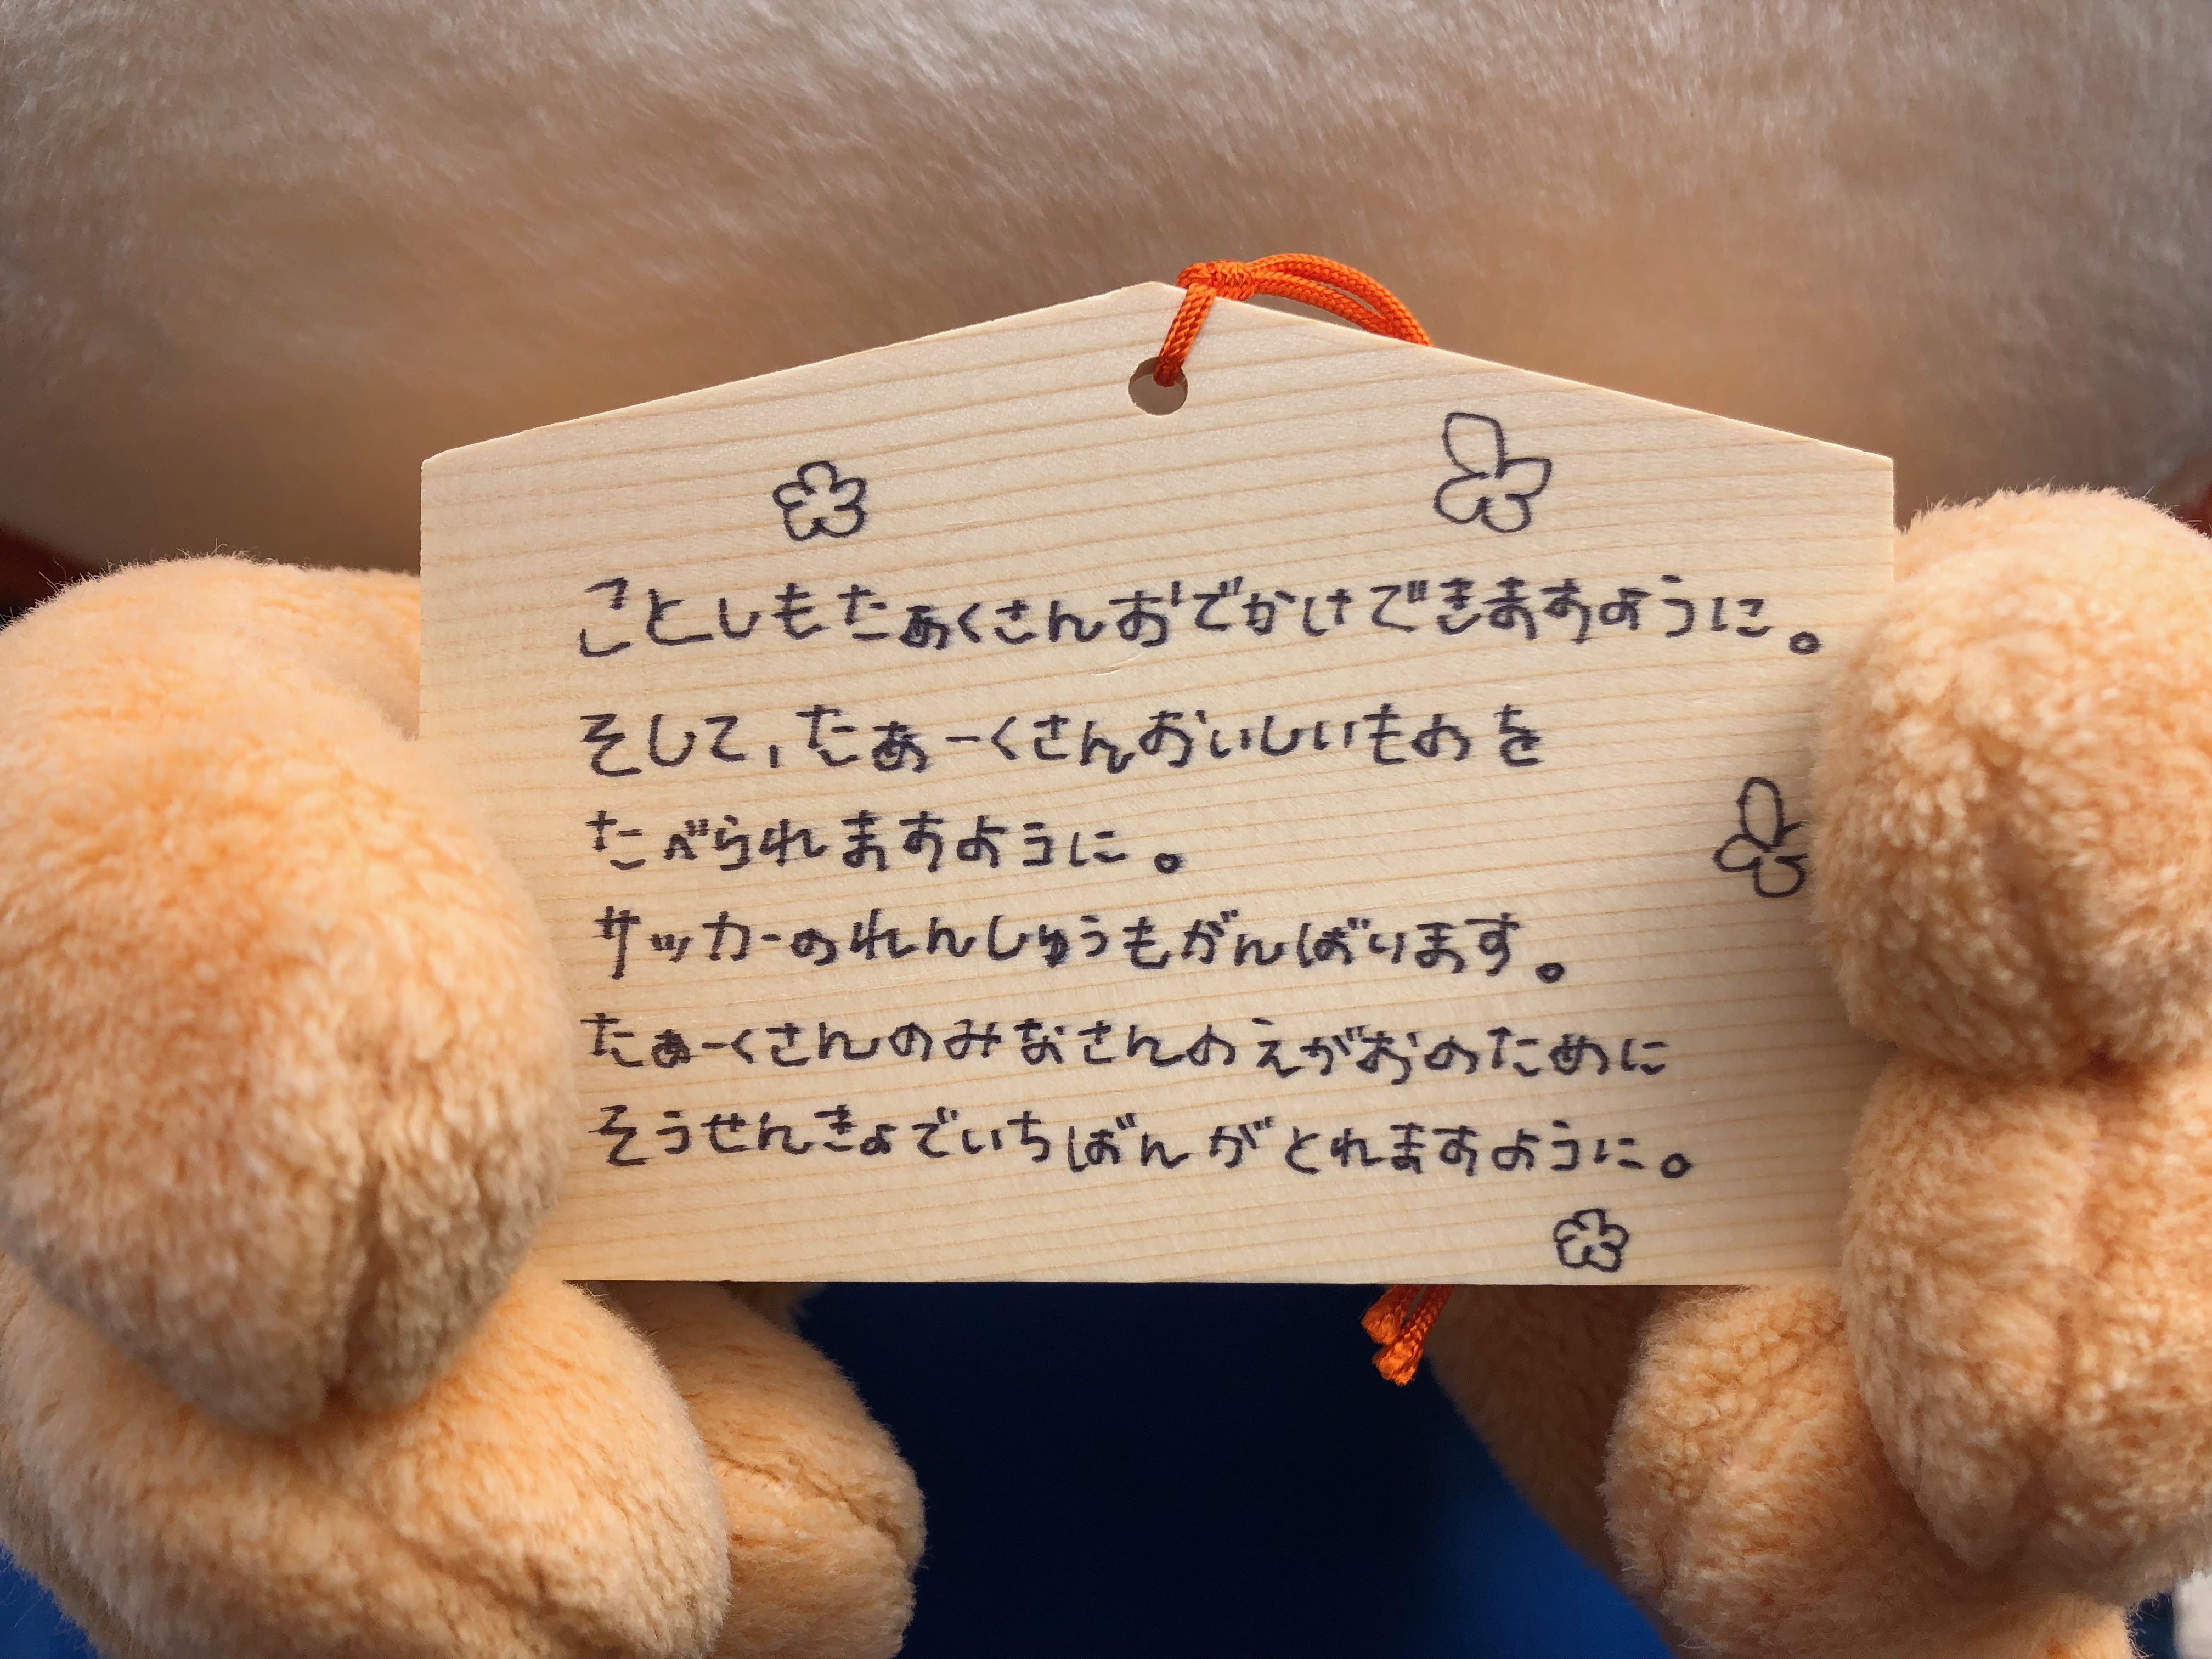 ことしもたぁくさんおでかけできますように。
そして、たぁーくさんおいしいものを
たべられますように。
サッカーのれんしゅうもがんばります。
たぁーくさんのみなさんのえがおのために
そうせんきょでいちばんがとれますように。